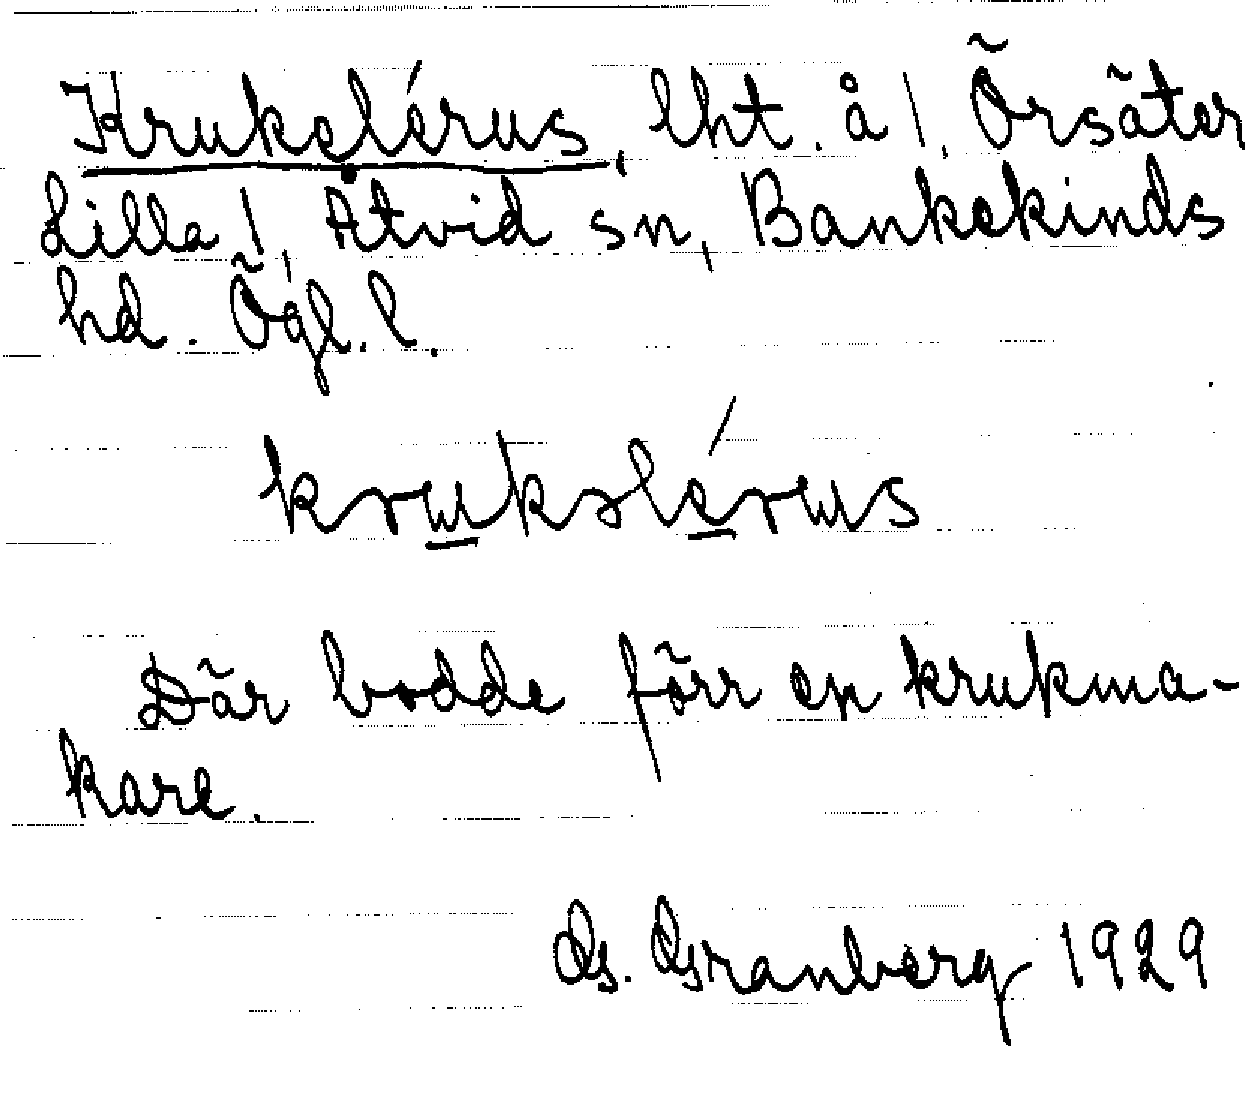 Krukelérus, lht. å /, Örsäter
Lilla /, Åtvid sn, Bankekinds
hd. Ögl. l.
krukslérus
Där bodde förr en krukma-
kare.
G. Granberg 1929